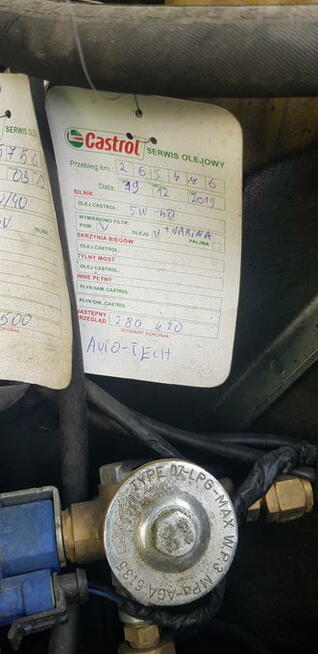 Castrol SERWIS OLEJOWY
Przebieg km. 2 6 5 4 4 6
Data: 19 12 2019
SILNIK
OLEJ CASTROL 5W-40
WYMIENIONO FILTR:
POW. V OLEJU V + KABINA PALIWA
SKRZYNIA BIEGÓW
OLEJ CASTROL
TYLNY MOST
OLEJ CASTROL
INNE PŁYNY
PŁYN HAM. CASTROL
PŁYN CHŁ. CASTROL
NASTĘPNY
PRZEGLĄD 280 420
WYMIANY DOKONAŁ
AUTO-TECH
SERWIS
03
/40
500
TYPE 07-LPG-MAX W.P.3 MPa-AGA 6135